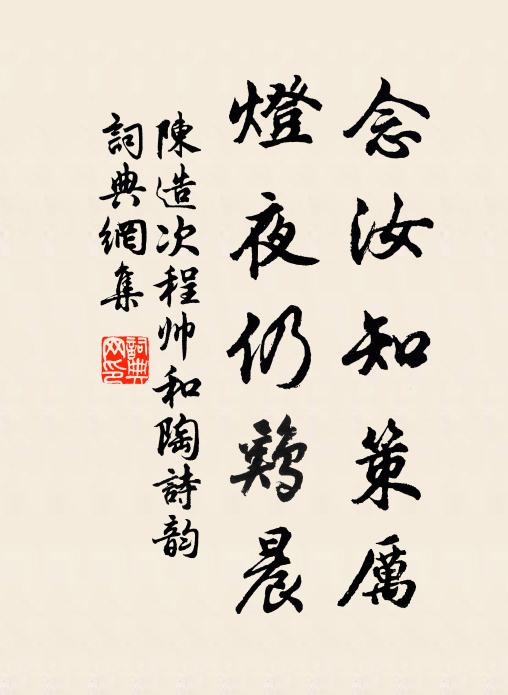 念汝知策厲
燈夜仍鷄晨
陳造次程帅和陶詩韵
詞典網集
詞典网印